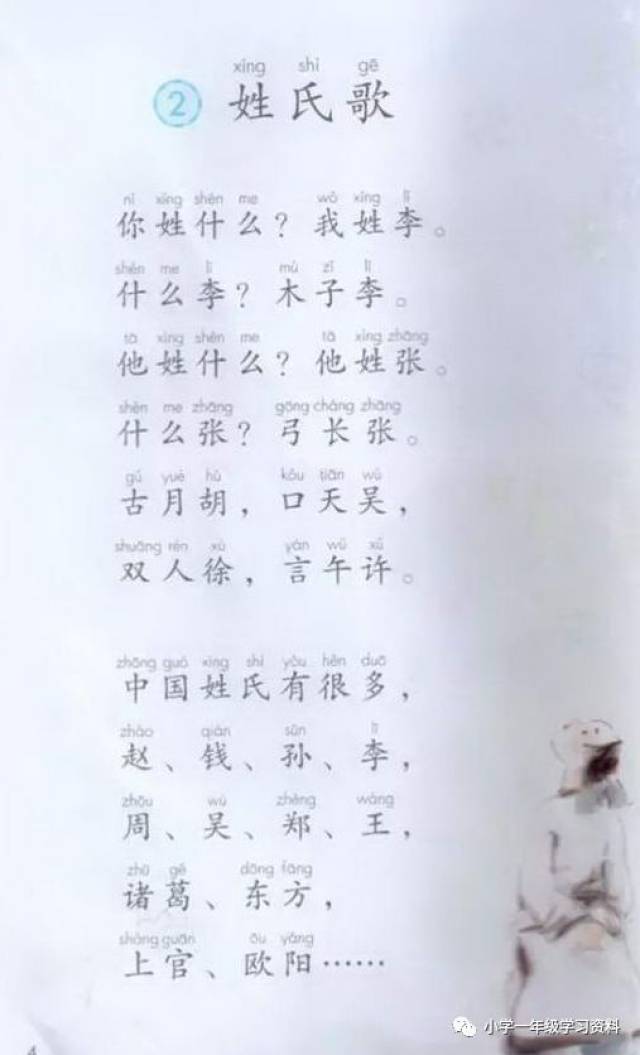 xìng shì gē
② 姓氏歌
nǐ xìng shén me wǒ xìng lǐ
你姓什么？我姓李。
shén me lǐ mù zǐ lǐ
什么李？木子李。
tā xìng shén me tā xìng zhāng
他姓什么？他姓张。
shén me zhāng gōng cháng zhāng
什么张？弓长张。
gǔ yuè hú kǒu tiān wú
古月胡，口天吴，
shuāng rén xú yán wǔ xǔ
双人徐，言午许。
zhōng guó xìng shì yǒu hěn duō
中国姓氏有很多，
zhào qián sūn lǐ
赵、钱、孙、李，
zhōu wú zhèng wáng
周、吴、郑、王，
zhū gě dōng fāng
诸葛、东方，
shàng guān ōu yáng
上官、欧阳……
4
小学一年级学习资料